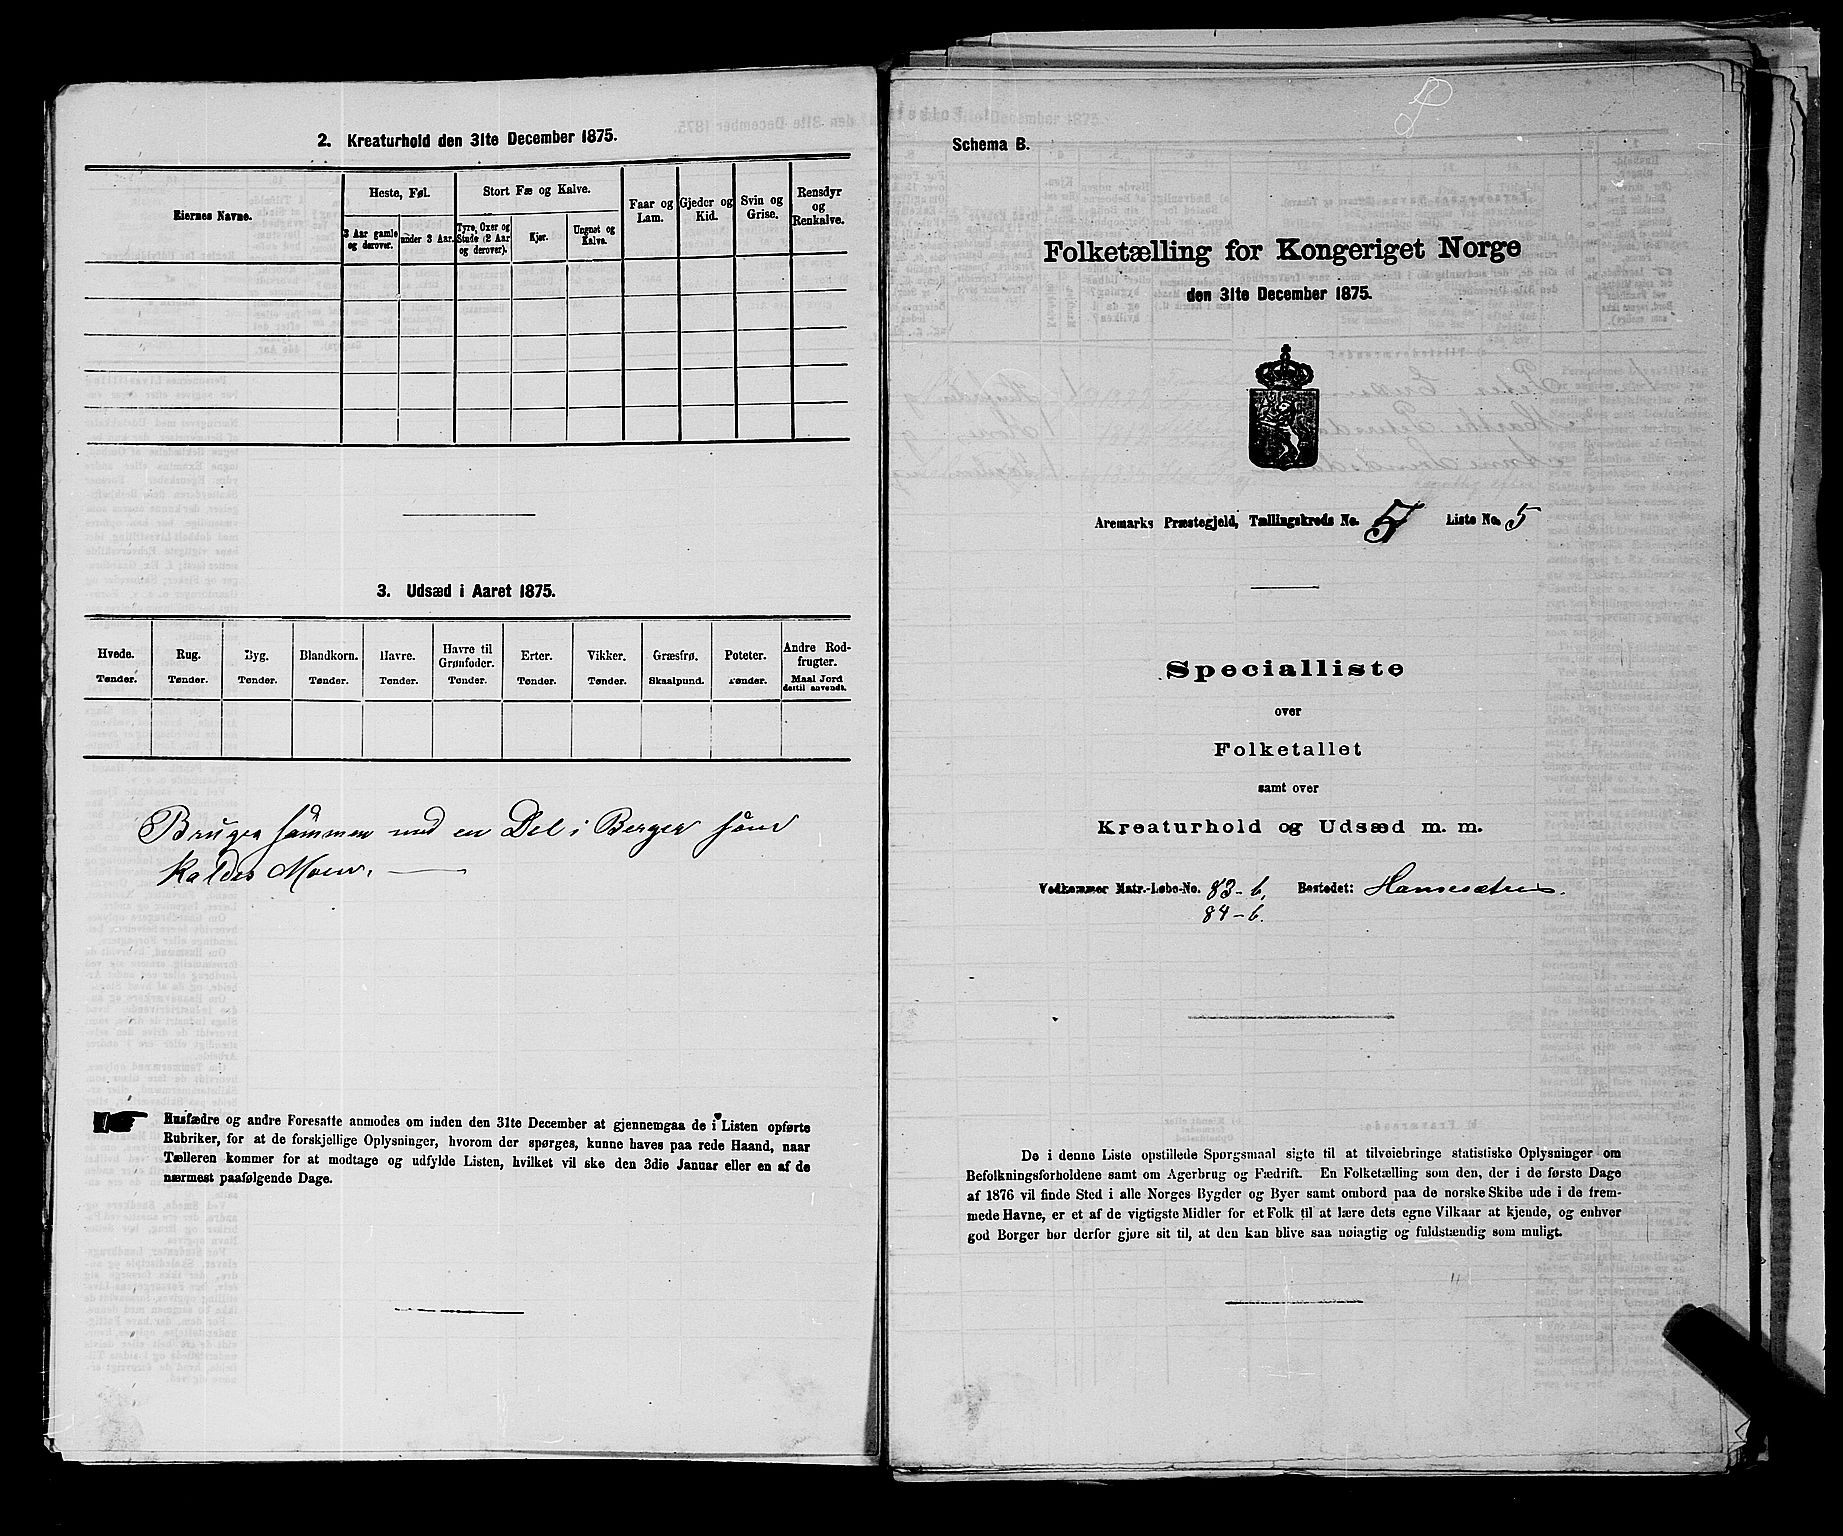 2. Kreaturhold den 31te December 1875.
Eiernes Navne.
Heste, Føl.
3 Aar gamle og derover.
under 3 Aar.
Stort Fæ og Kalve.
Tyre, Oxer og Stude (2 Aar og derover).
Kjør.
Ungnøt og Kalve.
Faar og Lam.
Gjeder og Kid.
Svin og Grise.
Rensdyr og Renkalve.
3. Udsæd i Aaret 1875.
Hvede. Tønder.
Rug. Tønder.
Byg. Tønder.
Blandkorn. Tønder.
Havre. Tønder.
Havre til Grønfoder. Tønder.
Erter. Tønder.
Vikker. Tønder.
Græsfrø. Skaalpund.
Poteter. Tønder.
Andre Rodfrugter. Maal Jord dertil anvendt.
Bruges sammen med en Del i Berger som
kaldes Moen.
Husfædre og andre Foresatte anmodes om inden den 31te December at gjennemgaa de i Listen opførte
Rubriker, for at de forskjellige Oplysninger, hvorom der spørges, kunne haves paa rede Haand, naar
Tælleren kommer for at modtage og udfylde Listen, hvilket vil ske den 3die Januar eller en af de
nærmest paafølgende Dage.
Schema B.
Folketælling for Kongeriget Norge
den 31te December 1875.
Aremarks Præstegjeld, Tællingskreds No. 5 Liste No. 5
Specialliste
over
Folketallet
samt over
Kreaturhold og Udsæd m. m.
Vedkommer Matr.-Løbe-No. 83-b, Bostedet:
84-b.
De i denne Liste opstillede Spørgsmaal sigte til at tilveiebringe statistiske Oplysninger om
Befolkningsforholdene samt om Agerbrug og Fædrift. En Folketælling som den, der i de første Dage
af 1876 vil finde Sted i alle Norges Bygder og Byer samt ombord paa de norske Skibe ude i de frem-
mede Havne, er et af de vigtigste Midler for et Folk til at lære dets egne Vilkaar at kjende, og enhver
god Borger bør derfor gjøre sit til, at den kan blive saa nøiagtig og fuldstændig som muligt.